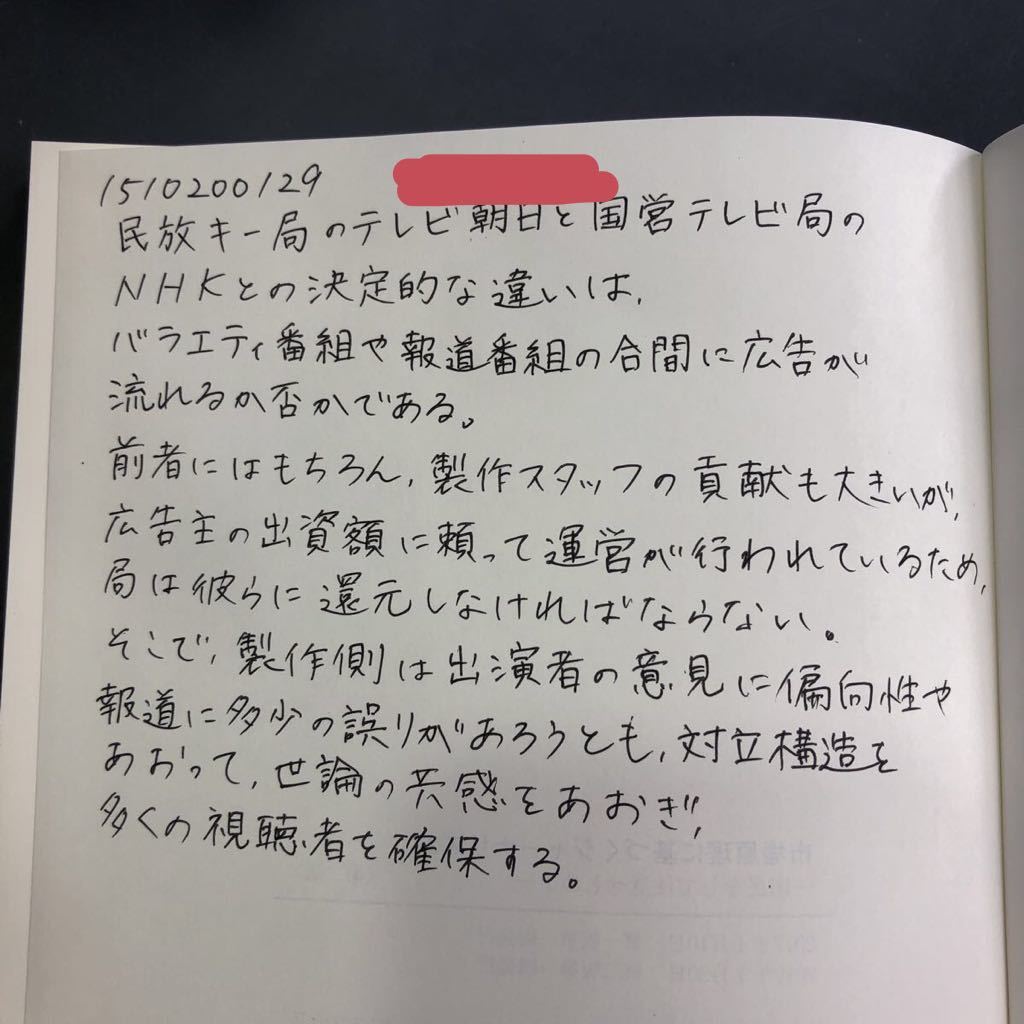 1510200129
民放キー局のテレビ朝日と国営テレビ局の
NHKとの決定的な違いは,
バラエティ番組や報道番組の合間に広告が
流れるか否かである。
前者にはもちろん,製作スタッフの貢献も大きいが,
広告主の出資額に頼って運営が行われているため,
局は彼らに還元しなければならない。
そこで,製作側は出演者の意見に偏向性や
報道に多少の誤りがあろうとも,対立構造を
あおって,世論の共感をあおぎ,
多くの視聴者を確保する。